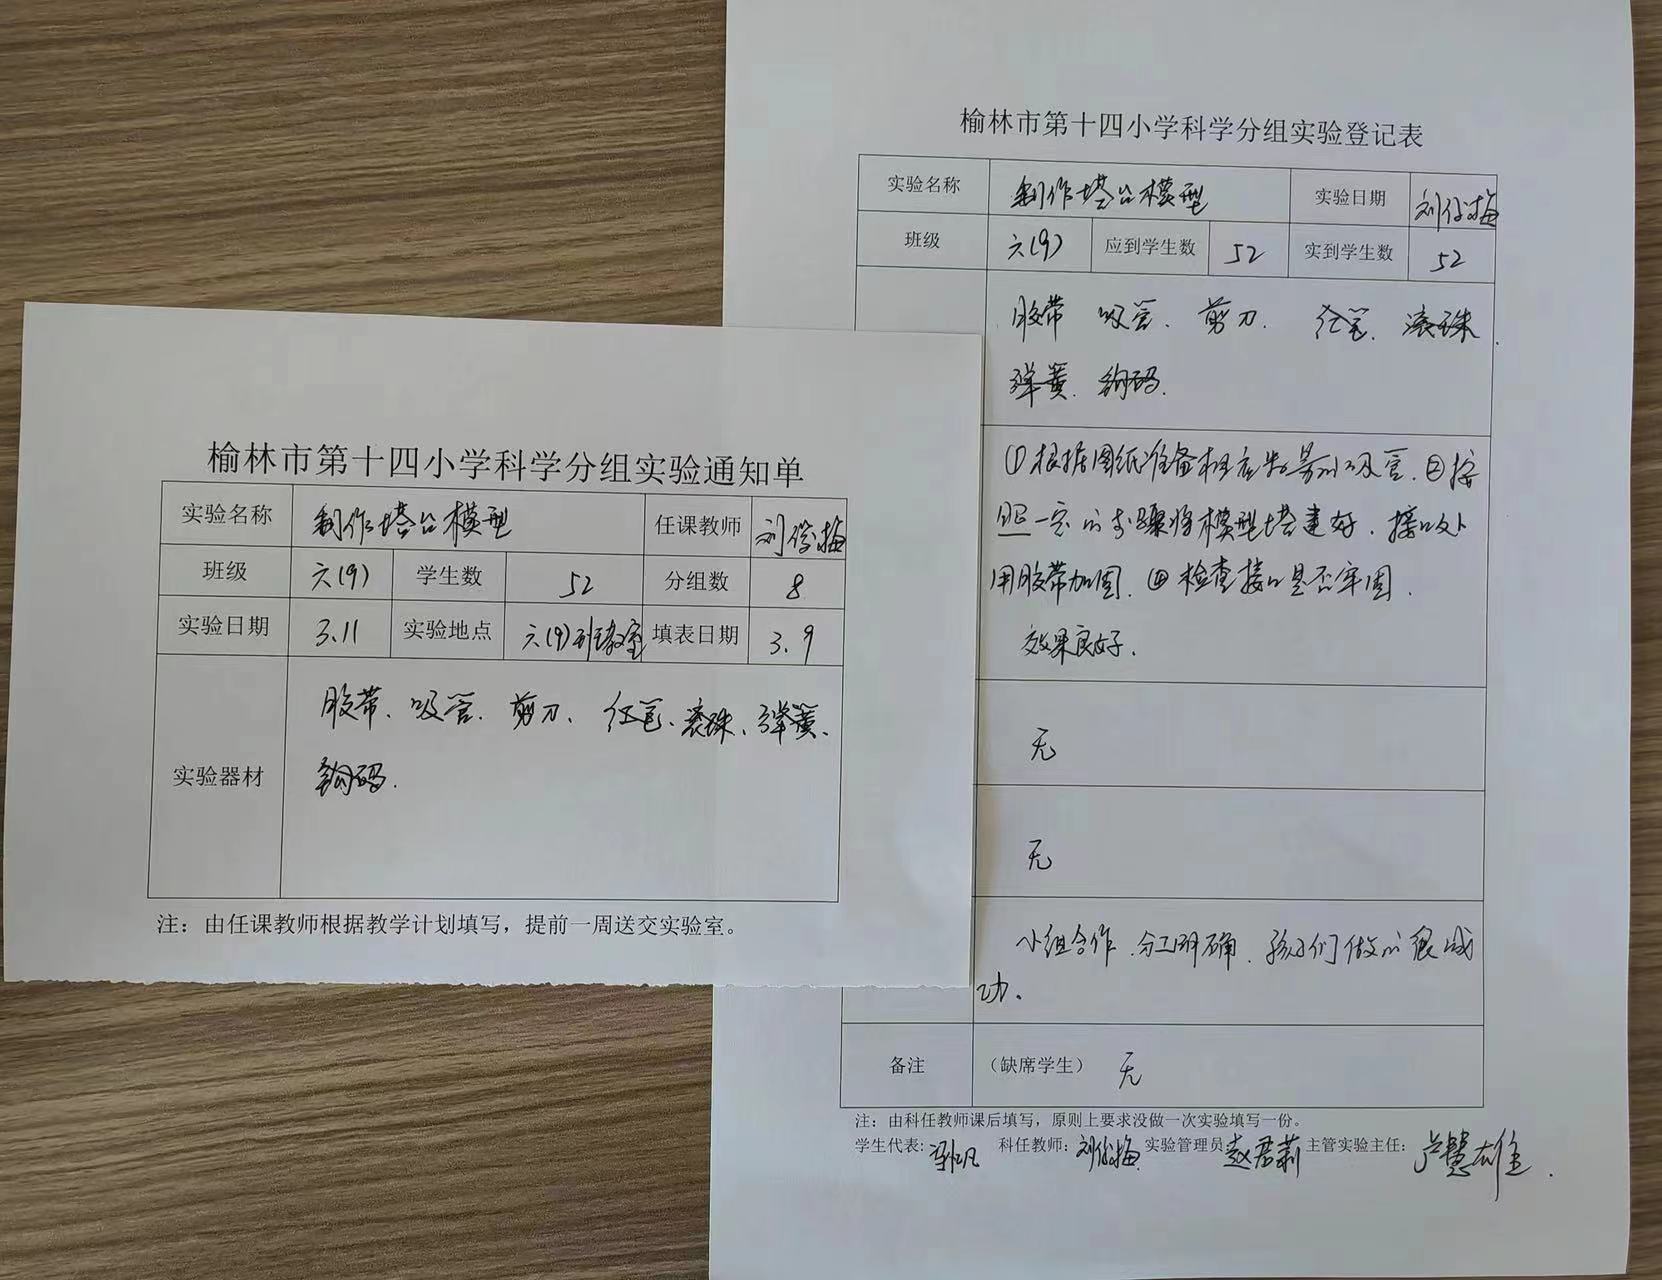 榆林市第十四小学科学分组实验通知单
实验名称 制作塔台模型 任课教师 刘俊梅
班级 六(9) 学生数 52 分组数 8
实验日期 3.11 实验地点 六(9)班教室 填表日期 3.9
胶带、吸管、剪刀、红笔、滚珠、弹簧、
实验器材
钩码.
注：由任课教师根据教学计划填写，提前一周送交实验室。
榆林市第十四小学科学分组实验登记表
实验名称 制作塔台模型 实验日期 刘俊梅
班级 六(9) 应到学生数 52 实到学生数 52
胶带 吸管、剪刀、红笔、滚珠、
弹簧、钩码.
①根据图纸准备相应数量的吸管.②按
照一定的步骤将模型搭建好，接口处
用胶带加固.④检查接口是否牢固.
效果良好.
无
无
小组合作.分工明确.孩子们做的很成
功.
备注 （缺席学生） 无
注：由科任教师课后填写，原则上要求没做一次实验填写一份。
学生代表: 科任教师: 刘俊梅 实验管理员 赵君莉 主管实验主任: